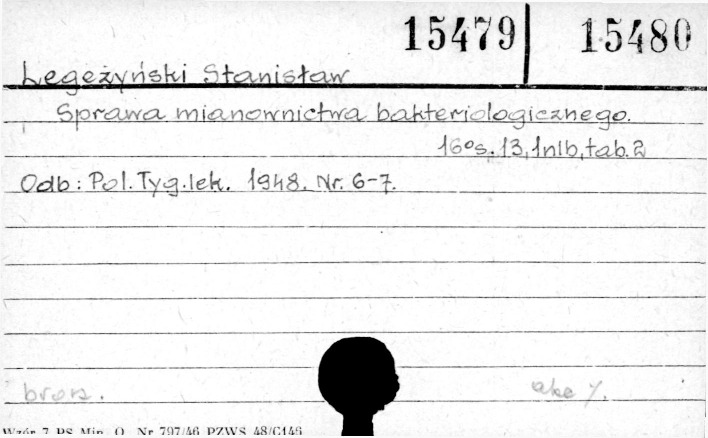 15479 | 15480
Legeżyński Stanisław
Sprawa mianownictwa bakteriologicznego.
16°s. 13, 1nlb, tab. 2
Odb: Pol. Tyg. lek. 1948. Nr. 6-7.
brosz.
Wzór 7 PS Min. O. Nr 797/46 PZWS 48/C146